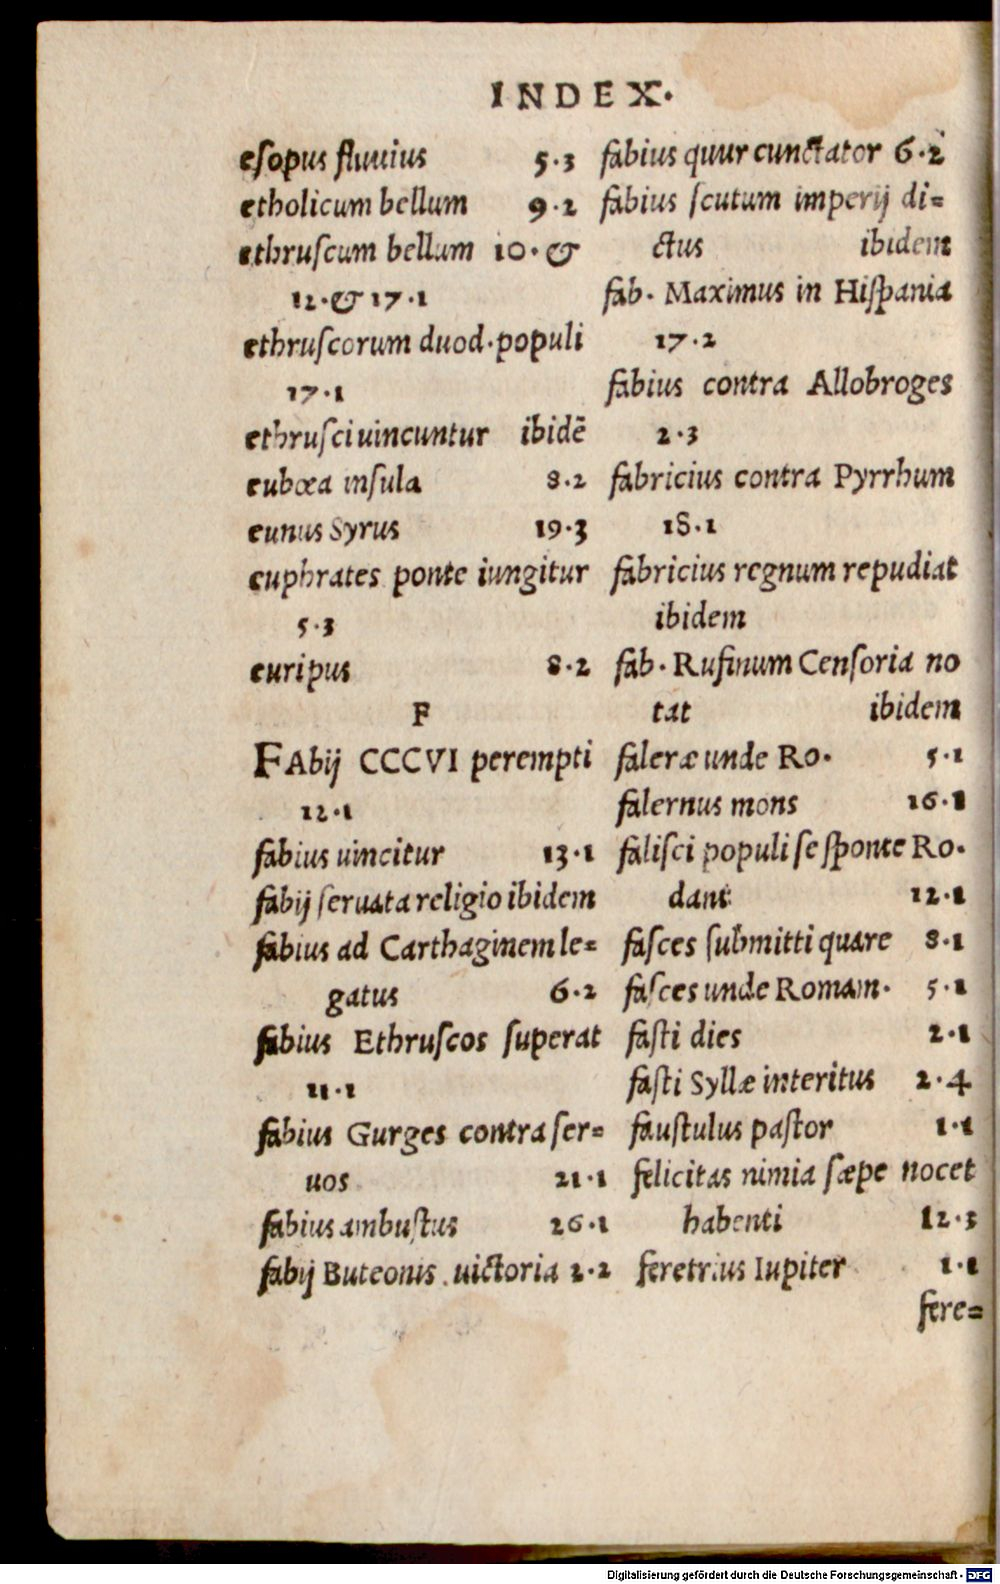 INDEX.
esopus fluuius 5.3
etholicum bellum 9.2
ethruscum bellum 10. &
12. & 17.1
ethruscorum duod. populi
17.1
ethrusci uincuntur ibidē
eubœa insula 8.2
eunus Syrus 19.3
euphrates ponte iungitur
5.3
euripus 8.2
F
FAbij CCCVI perempti
12.1
fabius uincitur 13.1
fabij seruata religio ibidem
fabius ad Carthaginem le=
gatus 6.2
fabius Ethruscos superat
11.1
fabius Gurges contra ser=
uos 21.1
fabius ambustus 26.1
fabij Buteonis uictoria 2.2
fabius quur cunctator 6.2
fabius scutum imperij di=
ctus ibidem
fab. Maximus in Hispania
17.2
fabius contra Allobroges
2.3
fabricius contra Pyrrhum
18.1
fabricius regnum repudiat
ibidem
fab. Rufinum Censoria no
tat ibidem
faleræ unde Ro. 5.1
falernus mons 16.1
falisci populi se sponte Ro.
dant 12.1
fasces submitti quare 8.1
fasces unde Romam. 5.1
fasti dies 2.1
fasti Syllæ interitus 2.4
faustulus pastor 1.1
felicitas nimia sæpe nocet
habenti 12.3
feretrius Iupiter 1.1
fere=
Digitalisierung gefördert durch die Deutsche Forschungsgemeinschaft - DFG